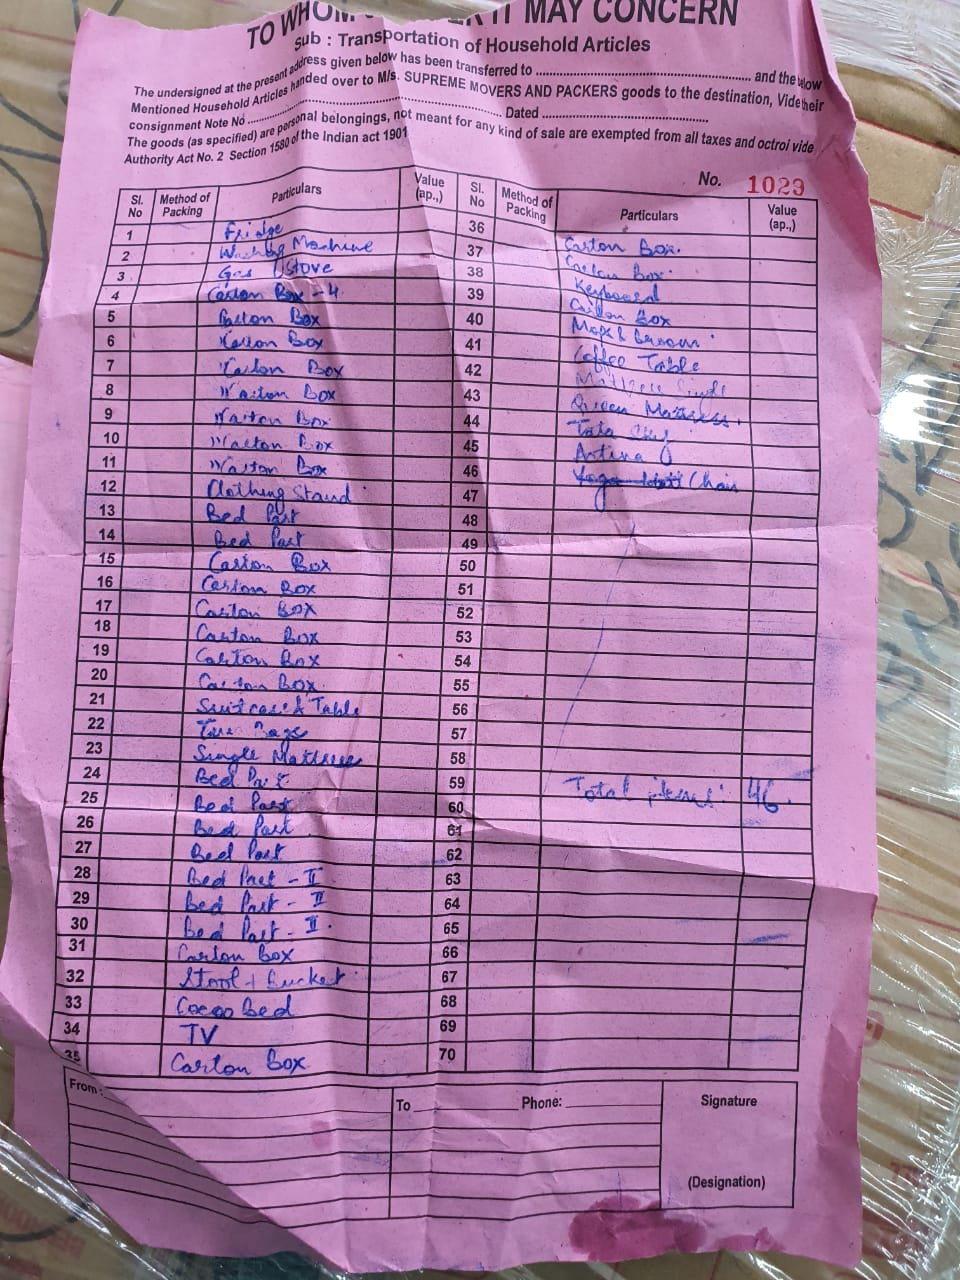 TO WHOM IT MAY CONCERN
Sub : Transportation of Household Articles
The undersigned at the present address given below has been transferred to ........ and the below
Mentioned Household Articles handed over to M/s. SUPREME MOVERS AND PACKERS goods to the destination, Vide their
consignment Note No ........ Dated ........
The goods (as specified) are personal belongings, not meant for any kind of sale are exempted from all taxes and octroi vide
Authority Act No. 2 Section 1580 of the Indian act 1901
No. 1029
Sl. No Method of Packing Particulars Value (ap.,) Sl. No Method of Packing Particulars Value (ap.,)
1 Fridge 36
2 Washing Machine 37 Carton Box.
3 Gas Stove 38 Carton Box.
4 Carton Box - 4 39 Keyboard
5 Carton Box 40 Carton Box
6 Carton Box 41 Mop & broom
7 Carton Box 42 Coffee Table
8 Carton Box 43 Mattress Single
9 Carton Box 44 Queen Mattress.
10 Carton Box 45 Tata
11 Carton Box 46
12 Clothing Stand 47 Chair
13 Bed Part 48
14 Bed Part 49
15 Carton Box 50
16 Carton Box 51
17 Carton Box 52
18 Carton Box 53
19 Carton Box 54
20 Carton Box. 55
21 Suitcase & Table 56
22 Bags 57
23 Single Mattress 58
24 Bed Part 59 Total items: 46.
25 Bed Part 60
26 Bed Part 61
27 Bed Part 62
28 Bed Part - II 63
29 Bed Part - II 64
30 Bed Part - II. 65
31 Carton Box 66
32 Stool + bucket 67
33 Cocoo Bed 68
34 TV 69
35 Carton Box 70
From: To Phone: Signature
(Designation)